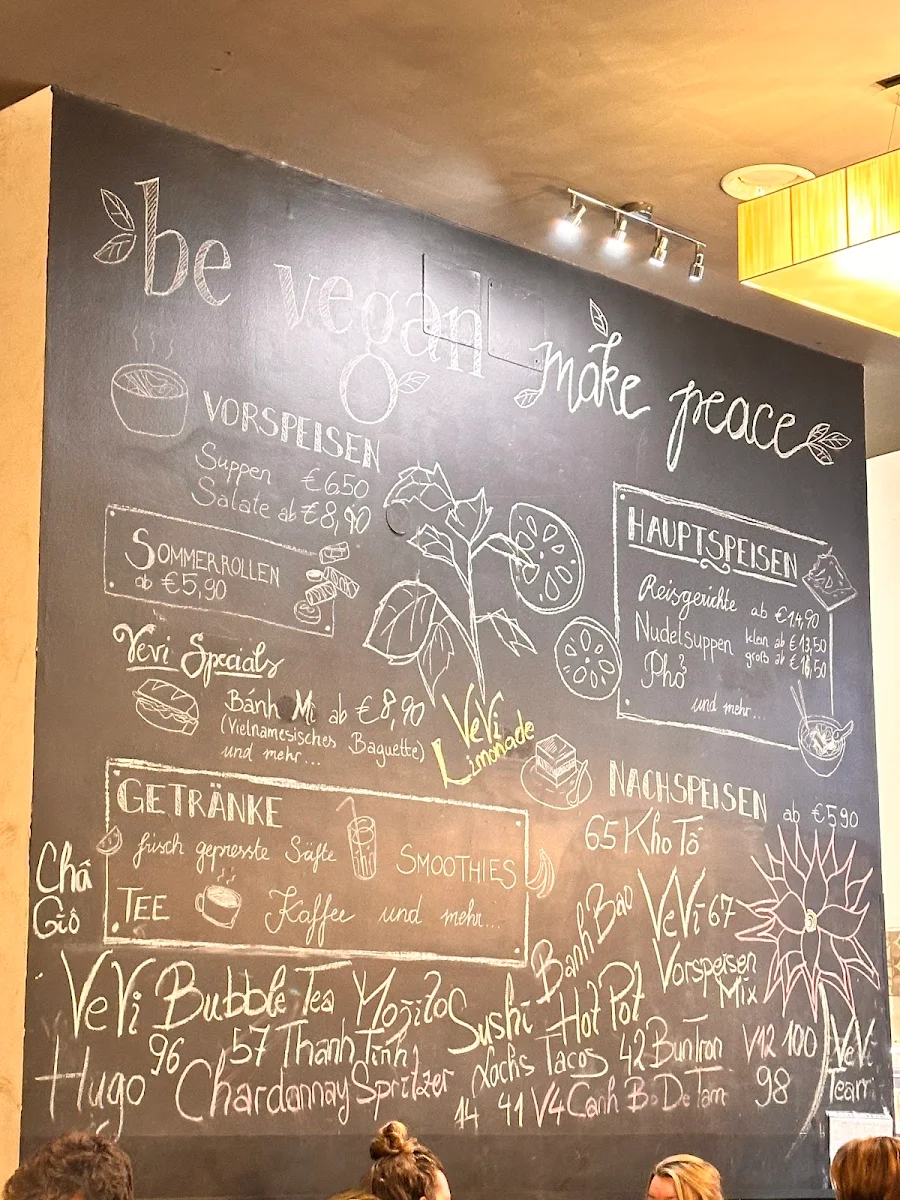 be vegan
make peace
VORSPEISEN
Suppen €6,50
Salate ab €8,90
SOMMERROLLEN
ab €5,90
VeVi Specials
Bánh Mì ab €8,90
(Vietnamesisches Baguette)
und mehr...
VeVi
Limonade
HAUPTSPEISEN
Reisgerichte ab €14,90
Nudelsuppen klein ab €13,50
groß ab €16,50
Phở
und mehr...
NACHSPEISEN ab €5,90
65 Kho Tộ
GETRÄNKE
frisch gepresste Säfte
SMOOTHIES
TEE Kaffee und mehr...
Chả
Giò
Banh Bao
VeVi 67
Vorspeisen
Mix
VeVi Bubble Tea Mojitos Sushi Hot Pot
Hugo 96 57 Thanh Tinh Lachs Tacos 42 Bun Tron V12 100 VeVi
Chardonnay Spritzer 14 41 V4 Canh Bo De Tam 98 Team